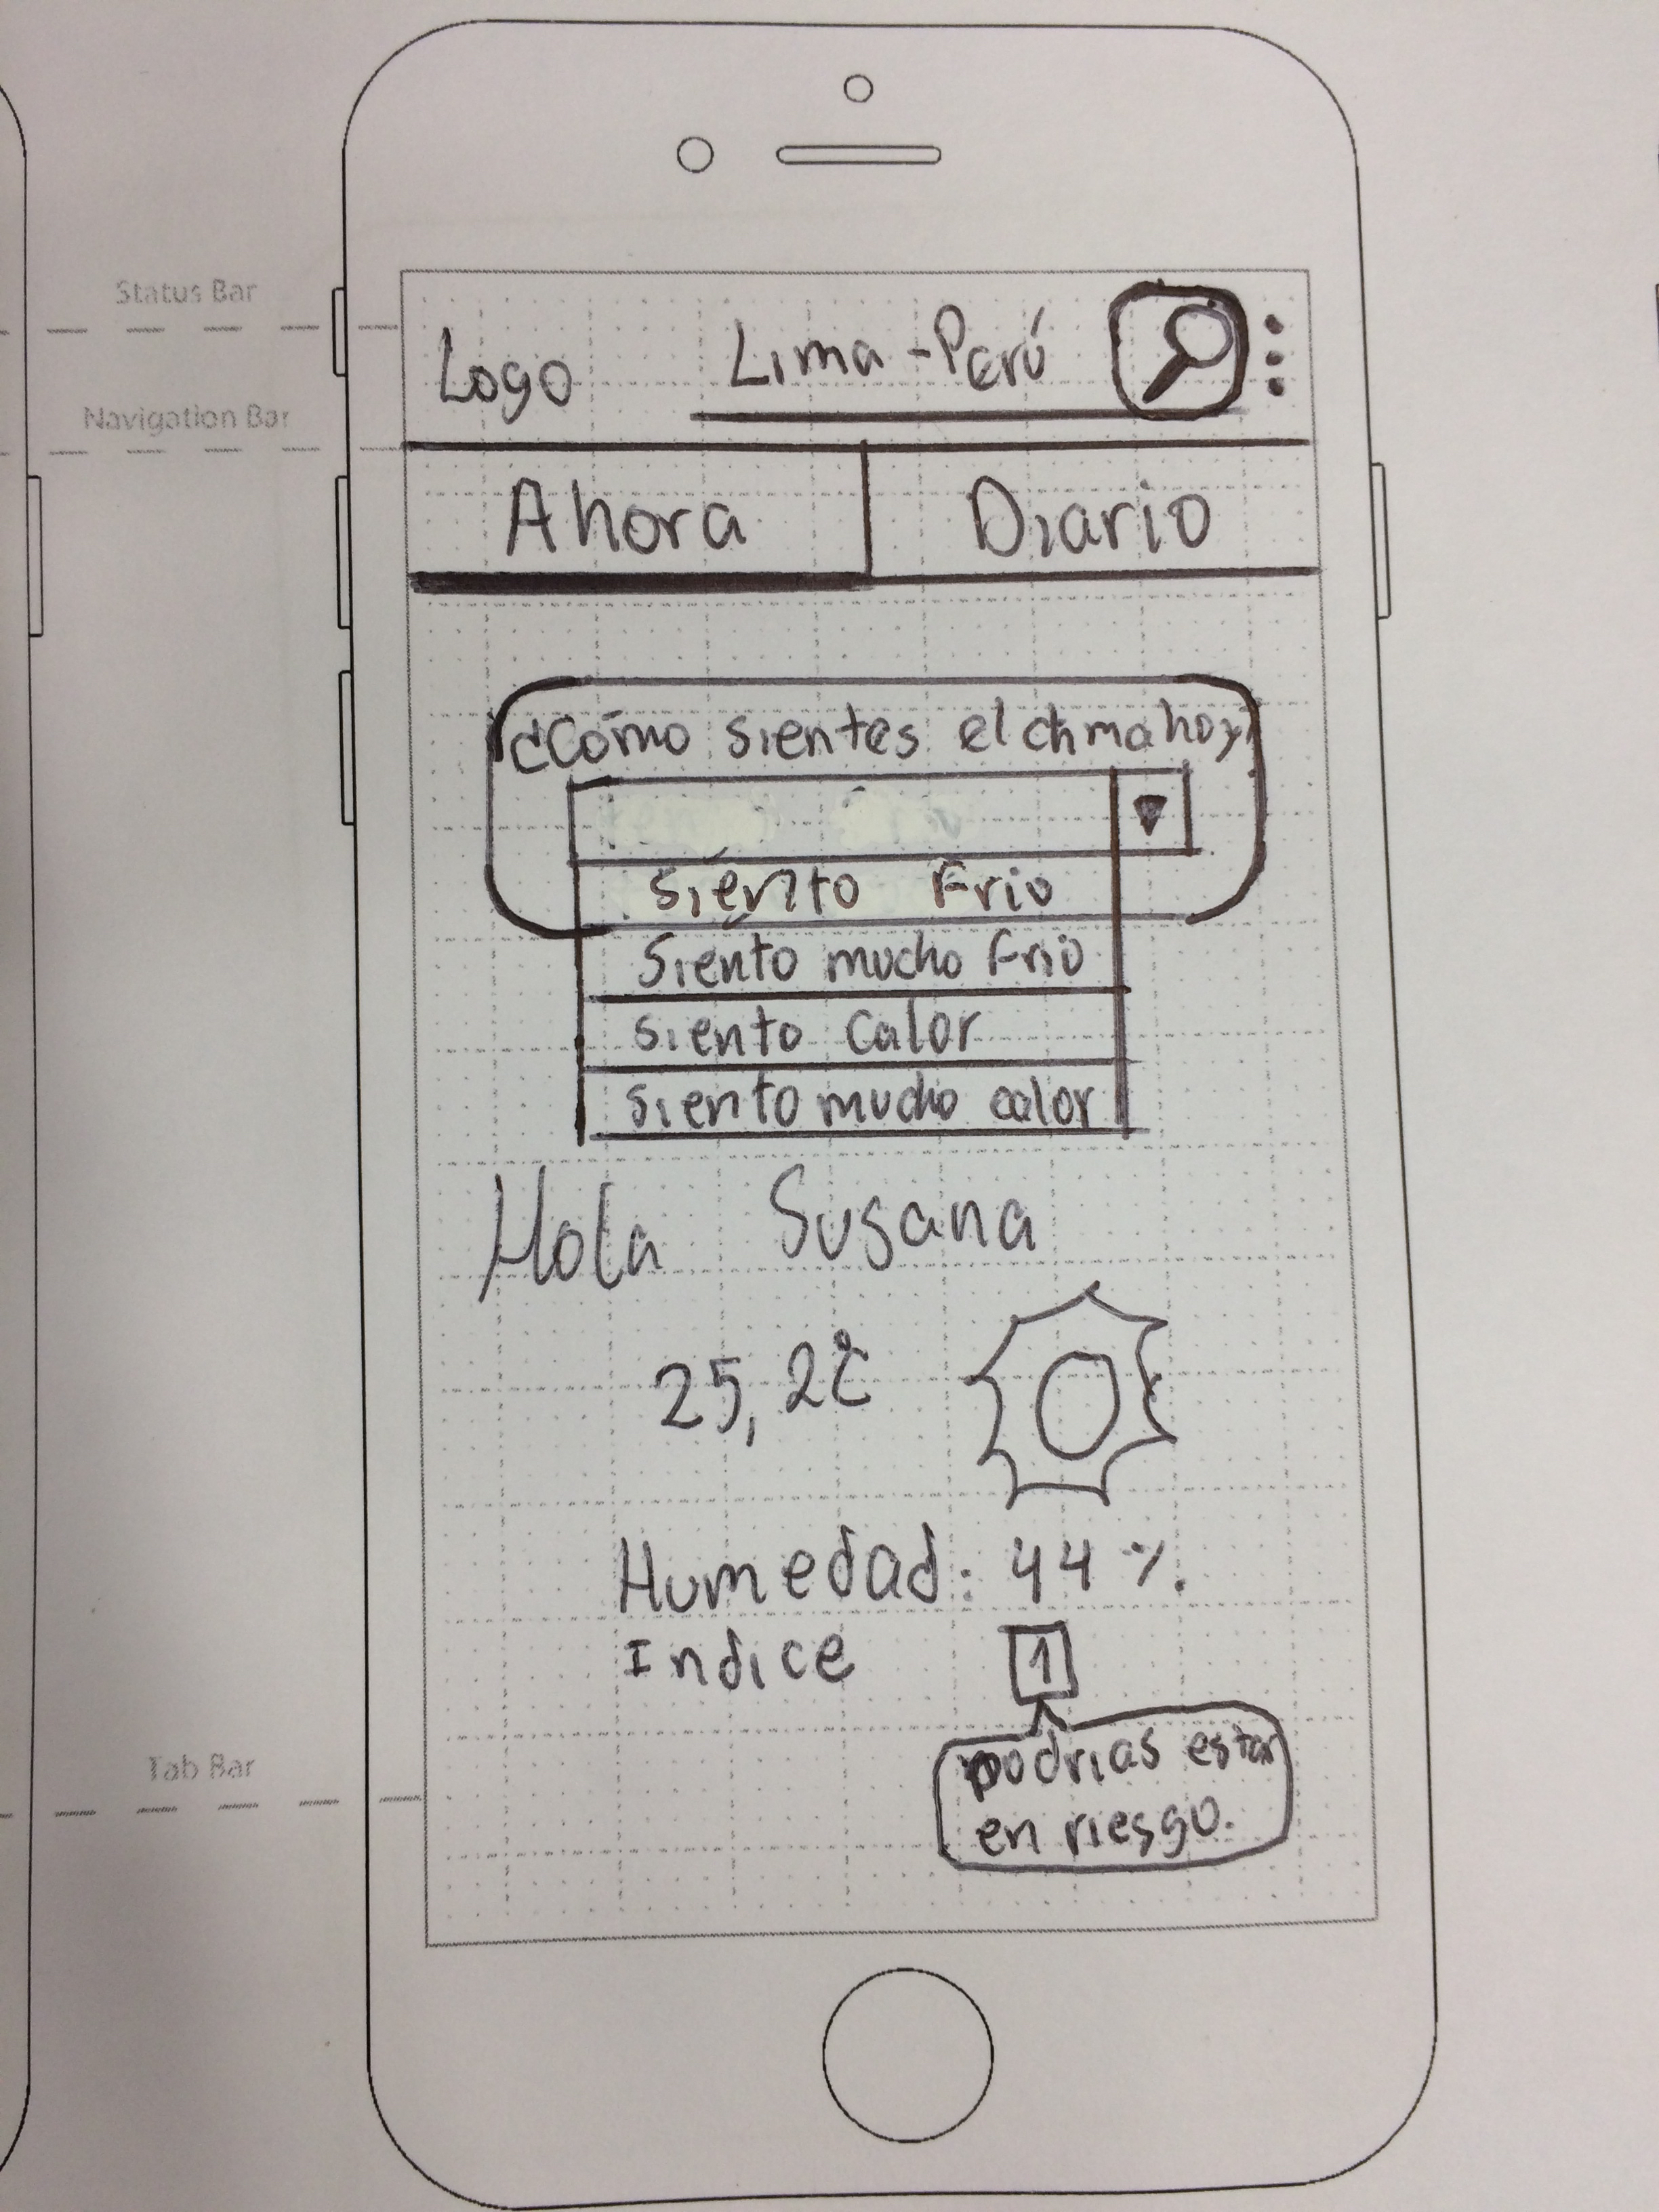 Status Bar
Logo Lima - Perú
Navigation Bar
Ahora Diario
¿Cómo sientes el clima hoy?
Siento Frio
Siento mucho Frio
siento Calor
siento mucho calor
Hola Susana
25,2°C
Humedad: 44 %
Indice 1
Tab Bar
podrias estar
en riesgo.